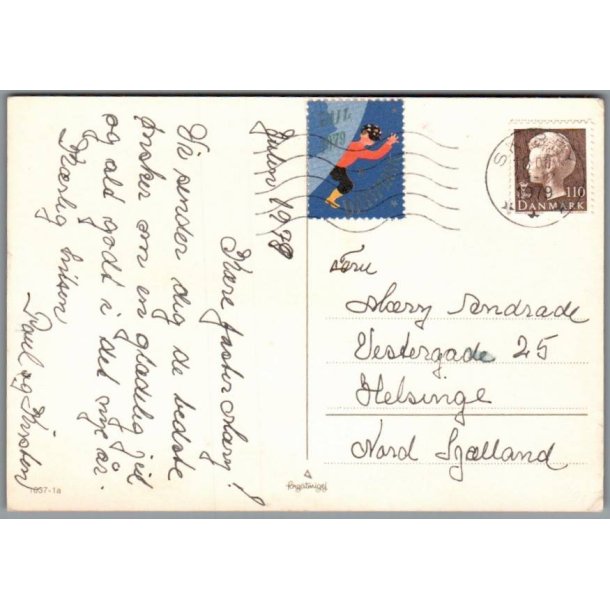 Julen 1979
Kære faster Mary!
Vi sender dig de bedste
ønsker om en glædelig jul
og alt godt i det nye år.
Kærlig hilsen
Poul og Kirsten
JUL
1979
DANMARK
1979
110
DANMARK
Fru
Mary Andrade
Vestergade 25
Helsinge
Nord Sjælland
1057-1a